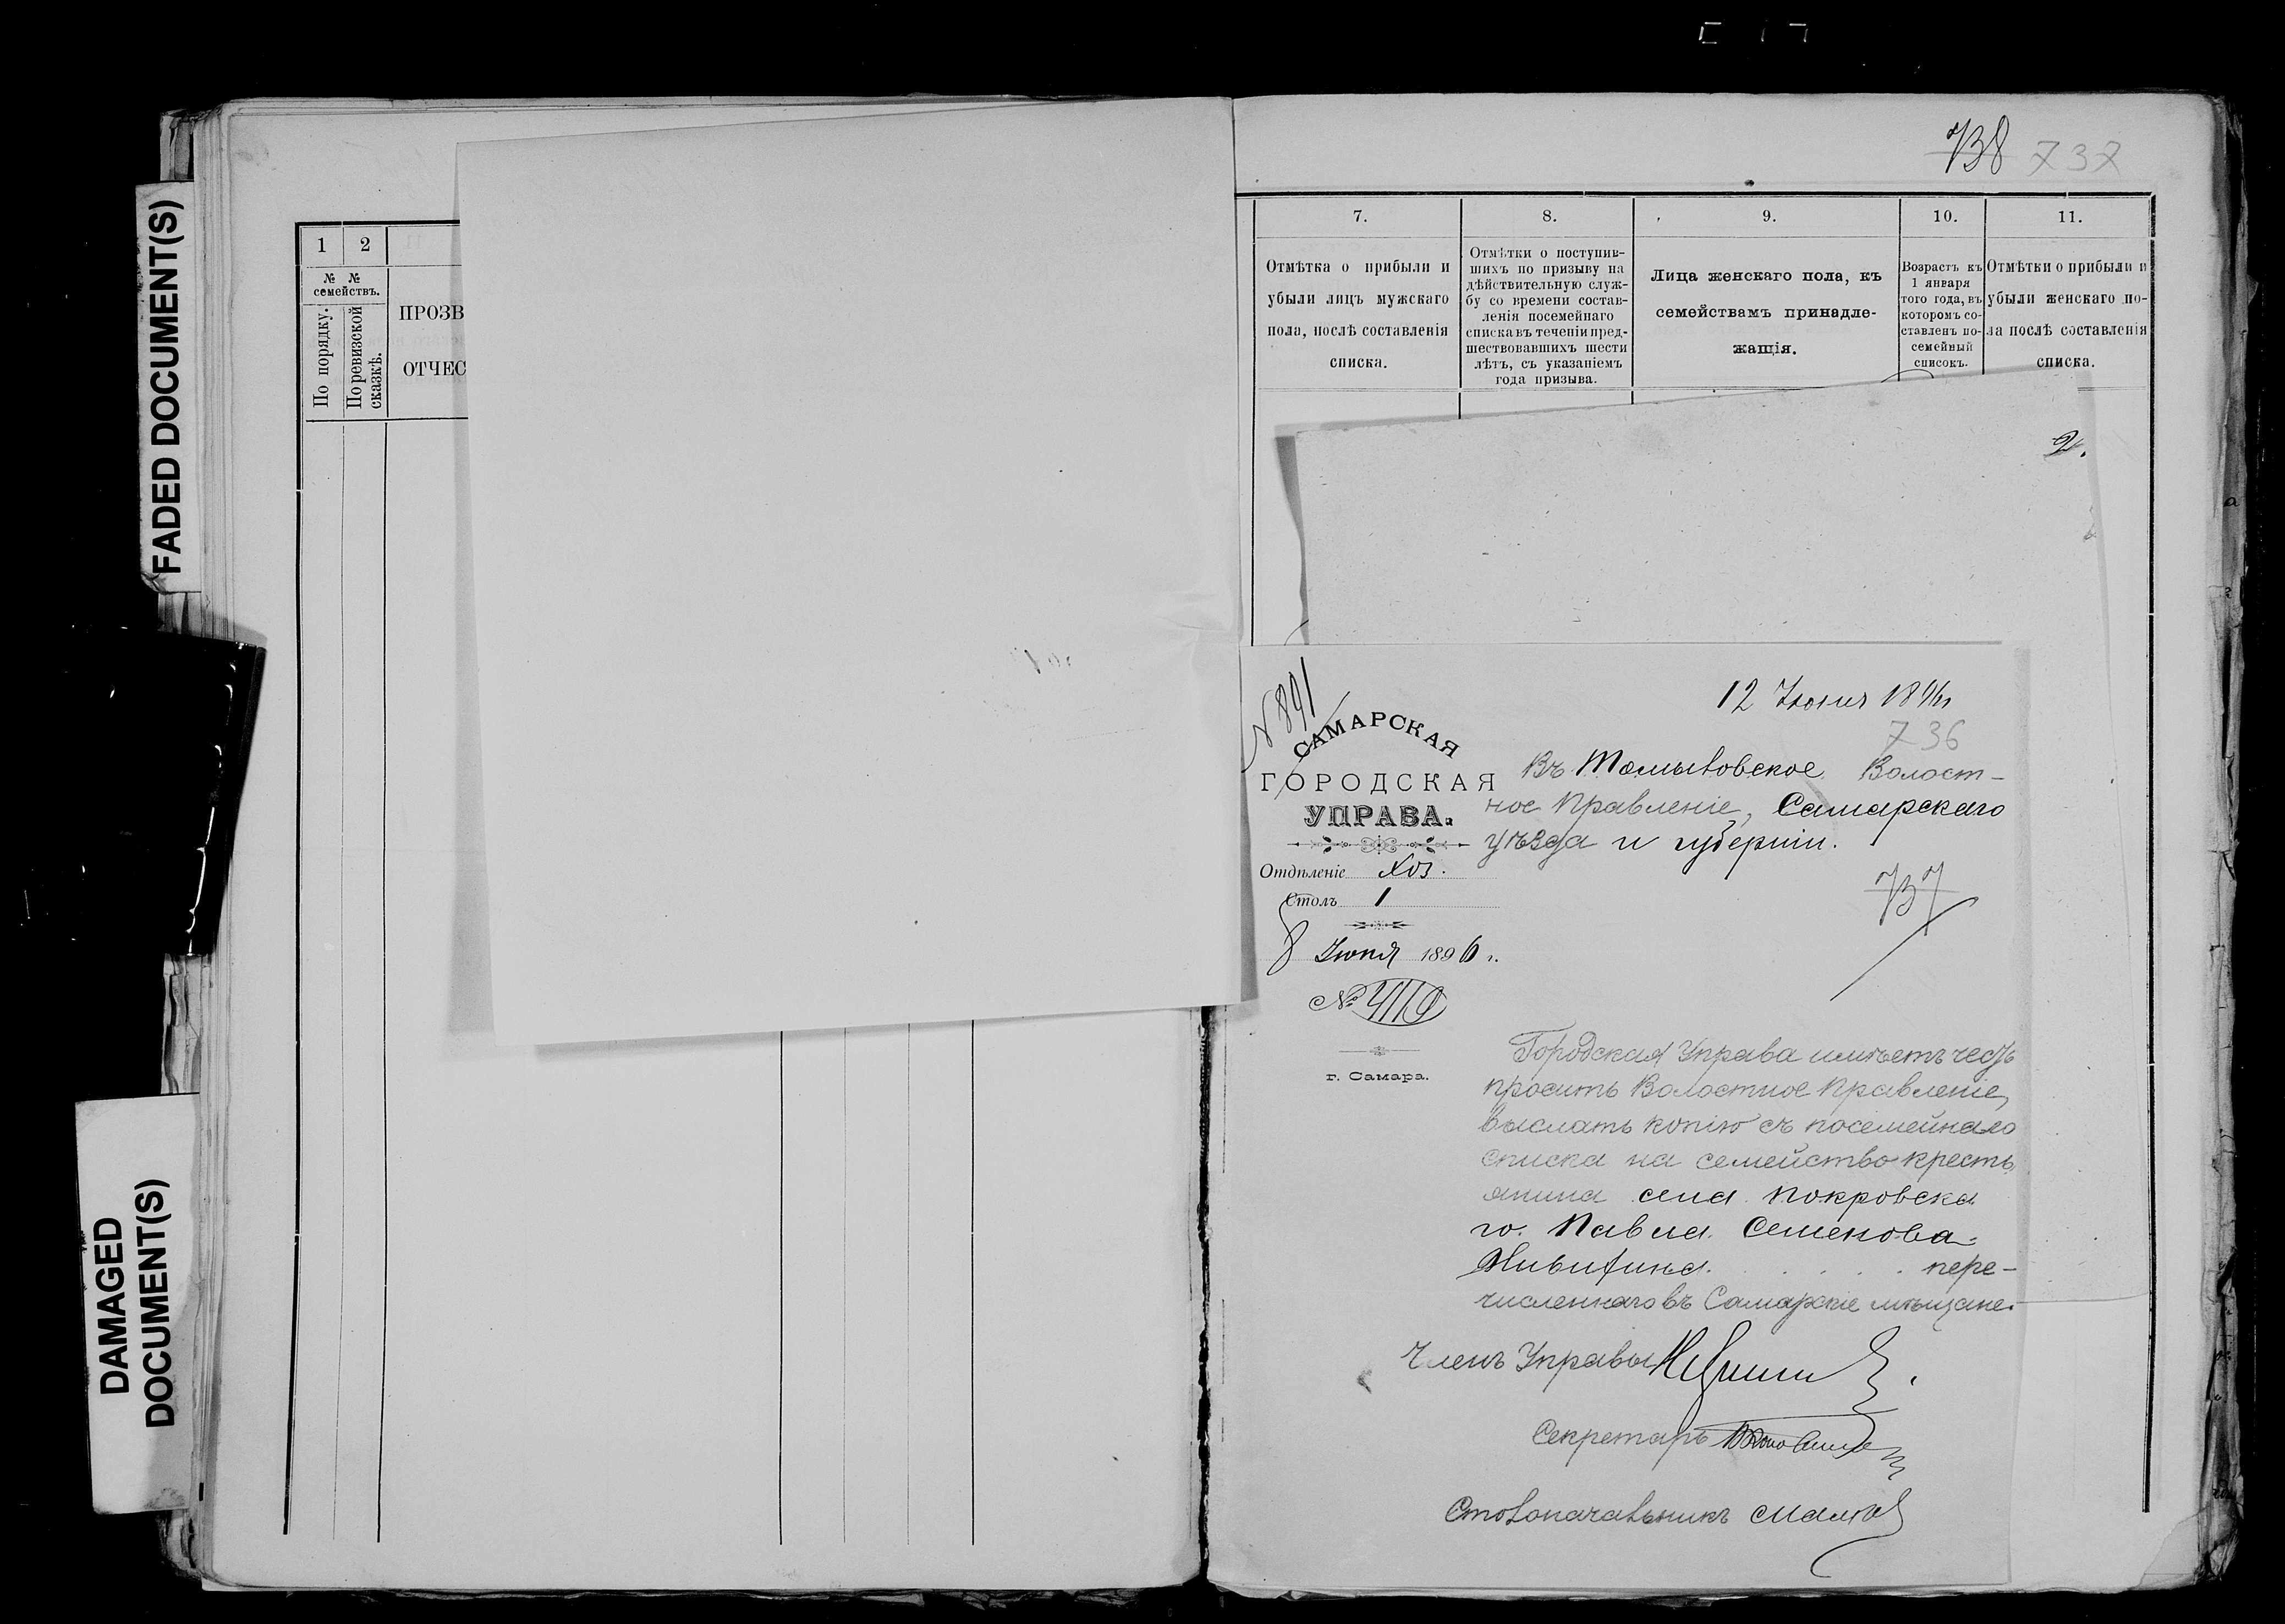 FADED DOCUMENT(S)
DAMAGED
DOCUMENT(S)
1
2
№ №
семействъ.
По порядку.
По ревизской
сказкѣ.
ПРОЗВ
ОТЧЕС
738 737
7.
Отмѣтка о прибыли и
убыли лицъ мужскаго
пола, послѣ составленія
списка.
8.
Отмѣтки о поступив-
шихъ по призыву на
дѣйствительную служ-
бу со времени состав-
ленія посемейнаго
списка въ теченіи пред-
шествовавшихъ шести
лѣтъ, съ указаніемъ
года призыва.
9.
Лица женскаго пола, къ
семействамъ принадле-
жащія.
10.
Возрастъ къ
1 января
того года, въ
которомъ со-
ставленъ по-
семейный
списокъ.
11.
Отмѣтки о прибыли и
убыли женскаго по-
ла послѣ составленія
списка.
2.
N 891
САМАРСКАЯ
ГОРОДСКАЯ
УПРАВА.
Отдѣленіе Хоз.
Столъ 1
8 Іюня 1896 г.
№
г. Самара.
12 Іюня 1896
736
Въ Волост-
ное Правленіе, Самарскаго
уѣзда и губерніи.
737
Городская Управа имѣетъ честь
просить Волостное Правленіе,
выслать копію съ посемейнаго
списка на семейство кресть
янина села Покровска
го. Павла. Семенова
пере-
численнаго въ Самарскіе мѣщане.
Членъ Управы
Секретарь
Столоначальникъ